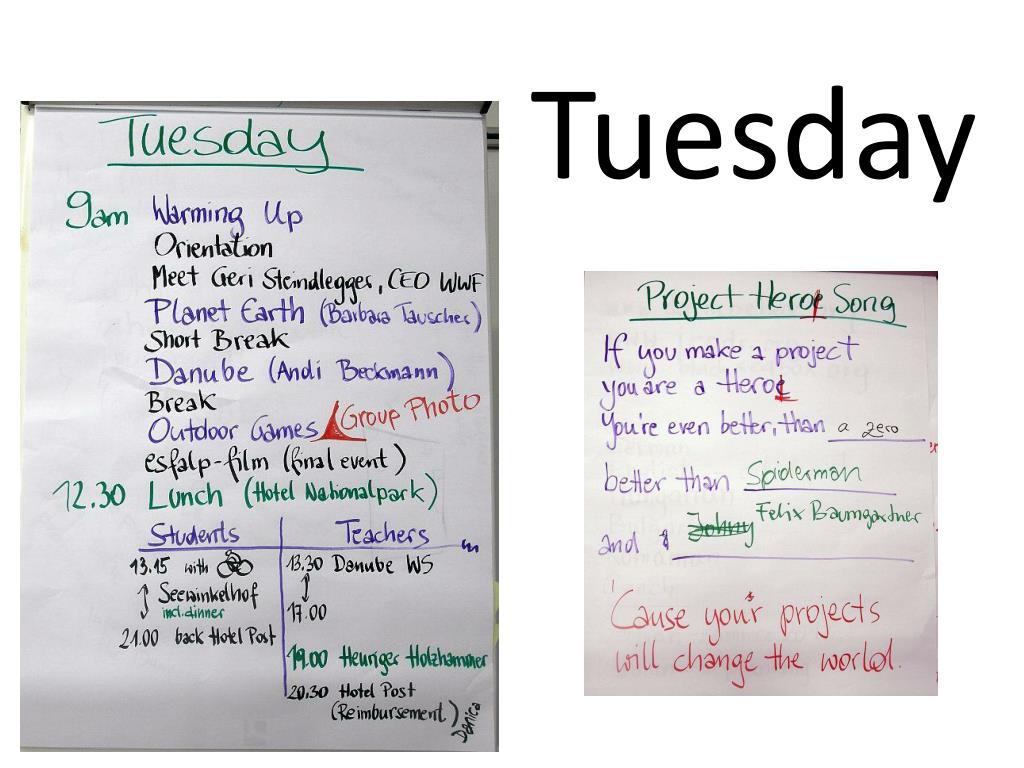 Tuesday
Tuesday
9am Warming Up
Orientation
Meet Geri Steindlegger, CEO WWF
Planet Earth (Barbara Tauscher)
Short Break
Danube (Andi Beckmann)
Break
Outdoor Games Group Photo
esfalp-film (final event)
12.30 Lunch (Hotel Nationalpark)
Students Teachers
13.15 with
Seewinkelhof
incl. dinner
21.00 back Hotel Post
13.30 Danube WS
17.00
19.00 Heuriger Holzhammer
20.30 Hotel Post
(Reimbursement)
Danica
Project Hero Song
If you make a project
you are a Hero
You're even better, than a zero
better than Spiderman
and Johny Felix Baumgartner
Cause your projects
will change the world.